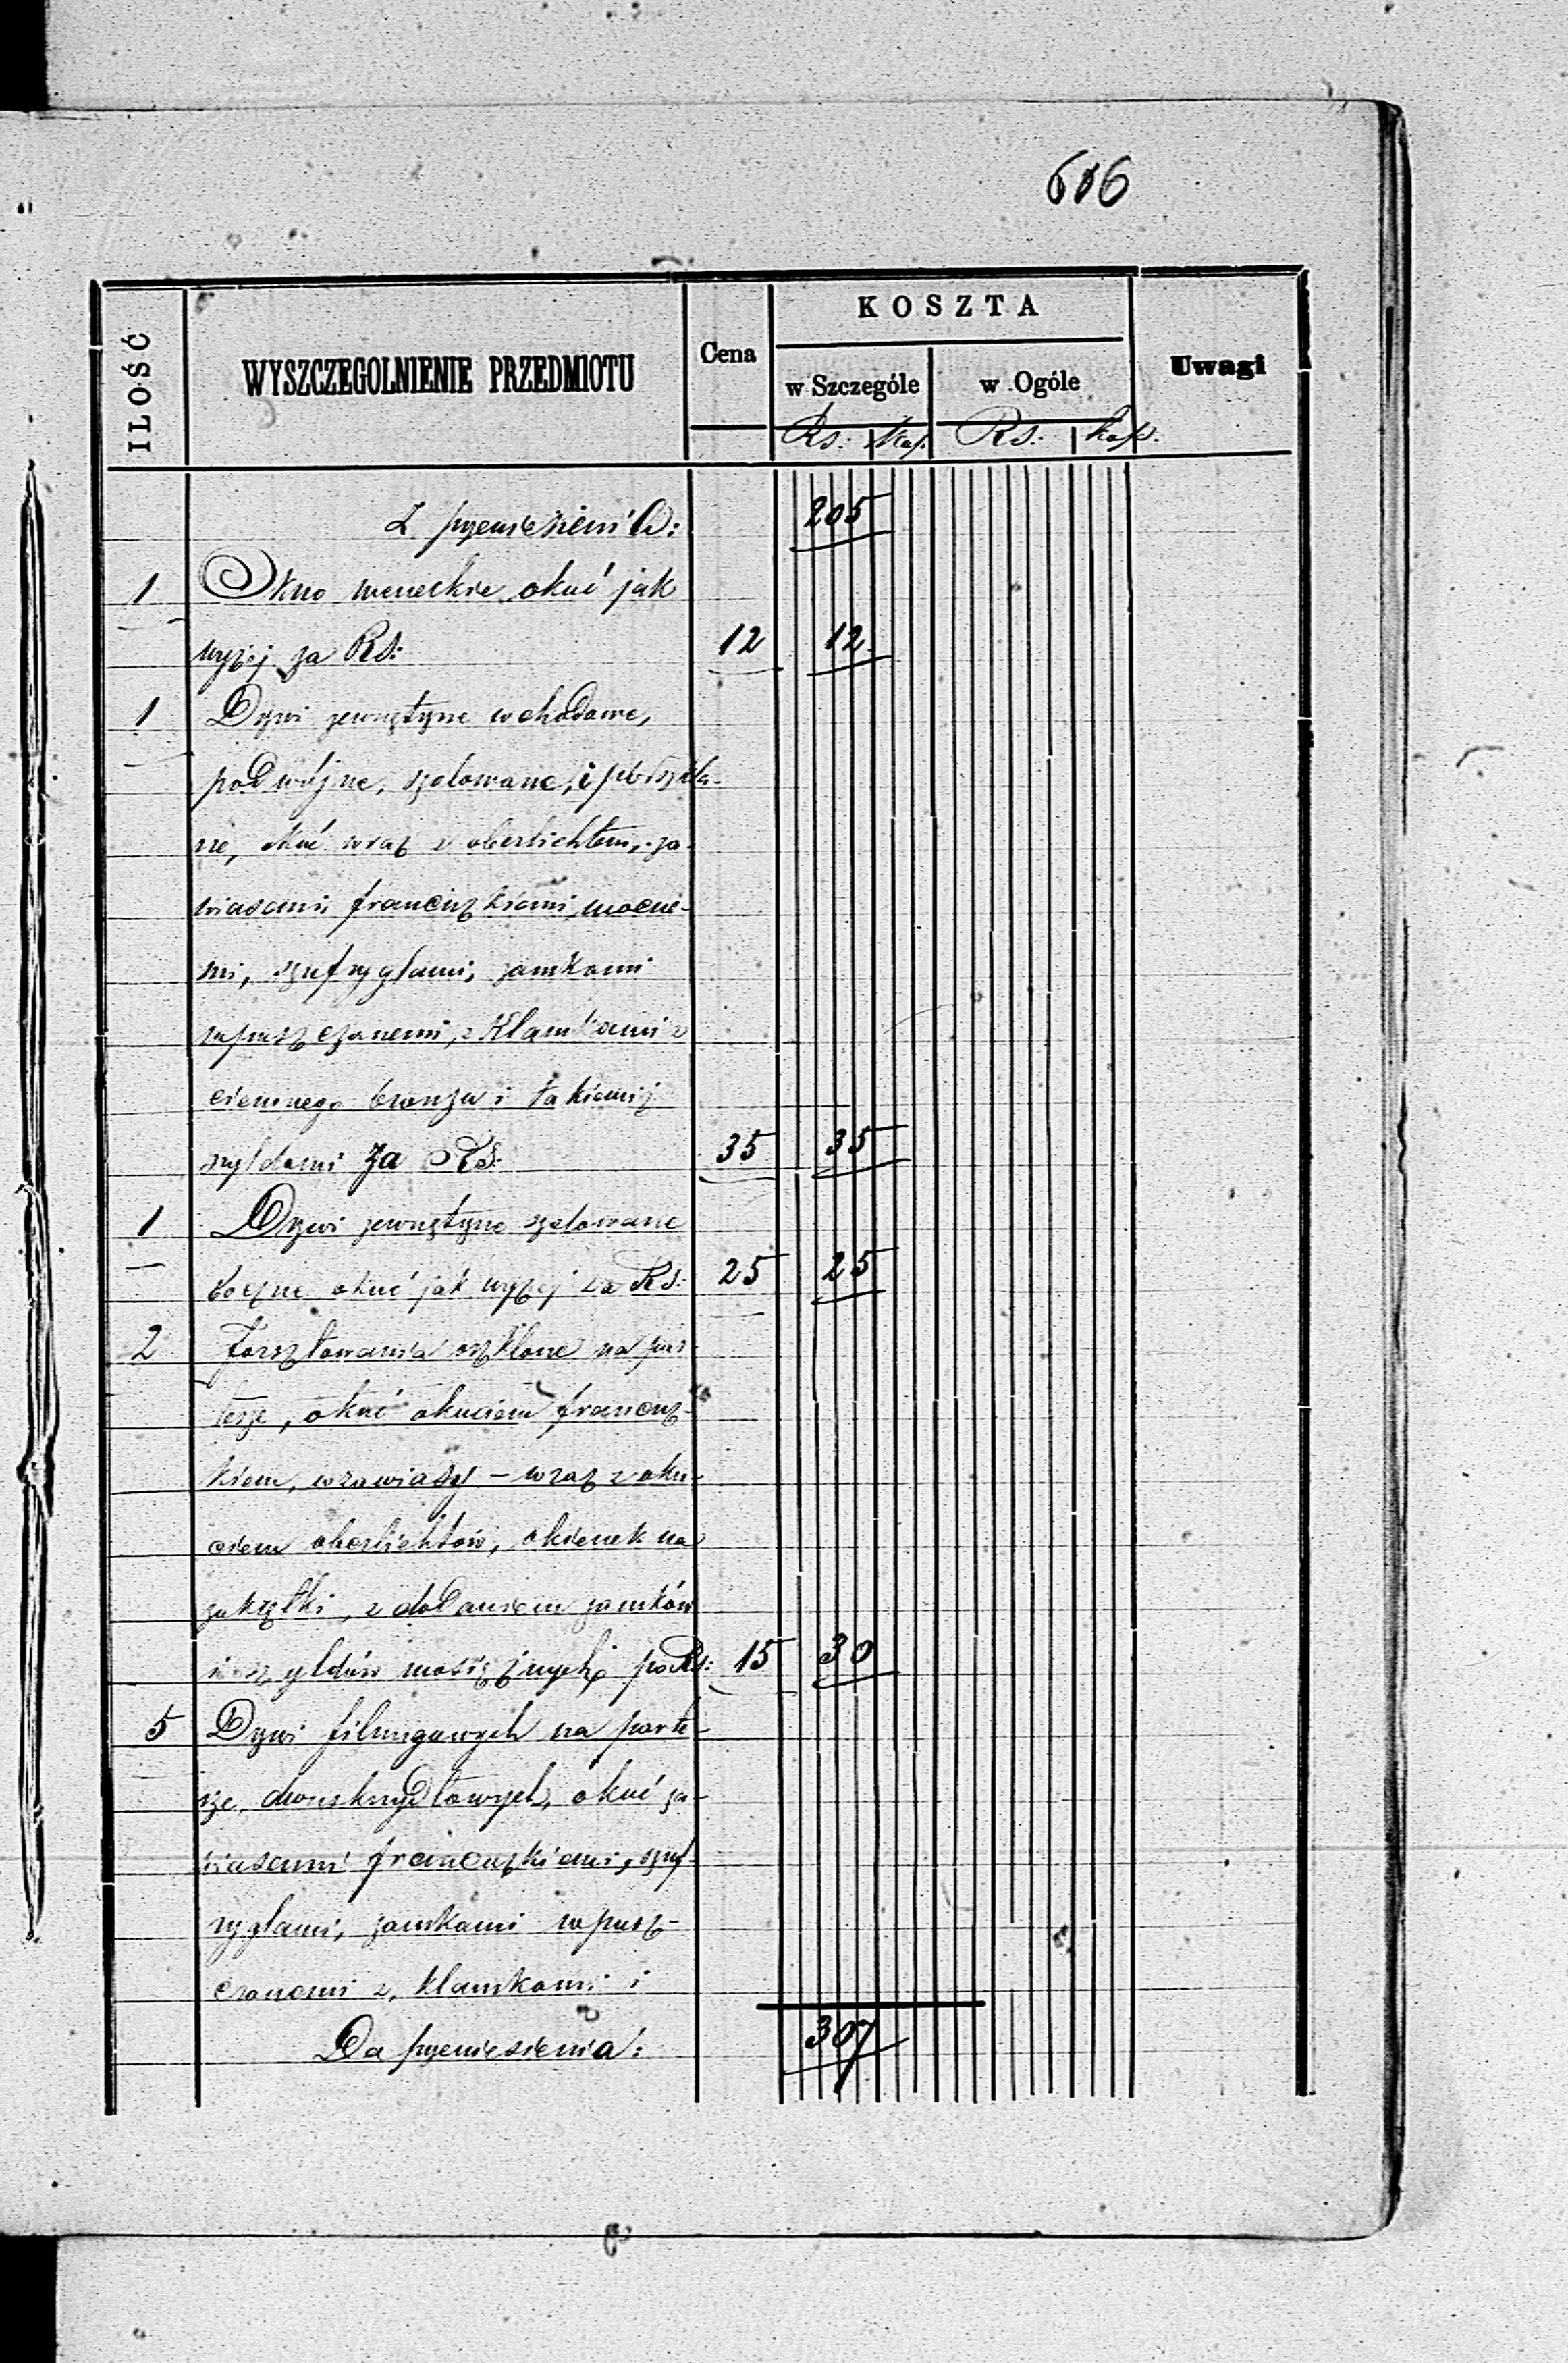 606
ILOŚĆ
WYSZCZEGOLNIENIE PRZEDMIOTU
Cena
KOSZTA
w Szczególe
w Ogóle
Uwagi
Rs. kop. Rs. kop.
Z przeniesienia: 205
1 Okno weneckie okuć jak
wyżej za Rs: 12 12
1 Drzwi zewnętrzne wchodowe,
podwójne, szalowane, i
ne, okuć wraz z oberlichtem, za-
wiasami francuzkiemi mocne-
mi, szufryglami, zamkami
wpuszczanemi, z klamkami z
ciemnego bronzu i takiemiż
szyldami za Rs. 35 35
1 Drzwi zewnętrzne szalowane
boczne okuć jak wyżej za Rs. 25 25
2 Forsztowania oszklone na par-
terze, okuć okuciem francuz-
kiem, w zawiasy – wraz z oku-
ciem oberlichtów, okienek na
zakrętki, z dodaniem zamków
i szyldów mosiężnych po Rs: 15 30
5 Drzwi filungowych na parte-
rze, dwuskrzydłowych, okuć za-
wiasami francuzkiemi, szuf-
ryglami, zamkami wpusz-
czanemi z, klamkami i
Do przeniesienia: 307